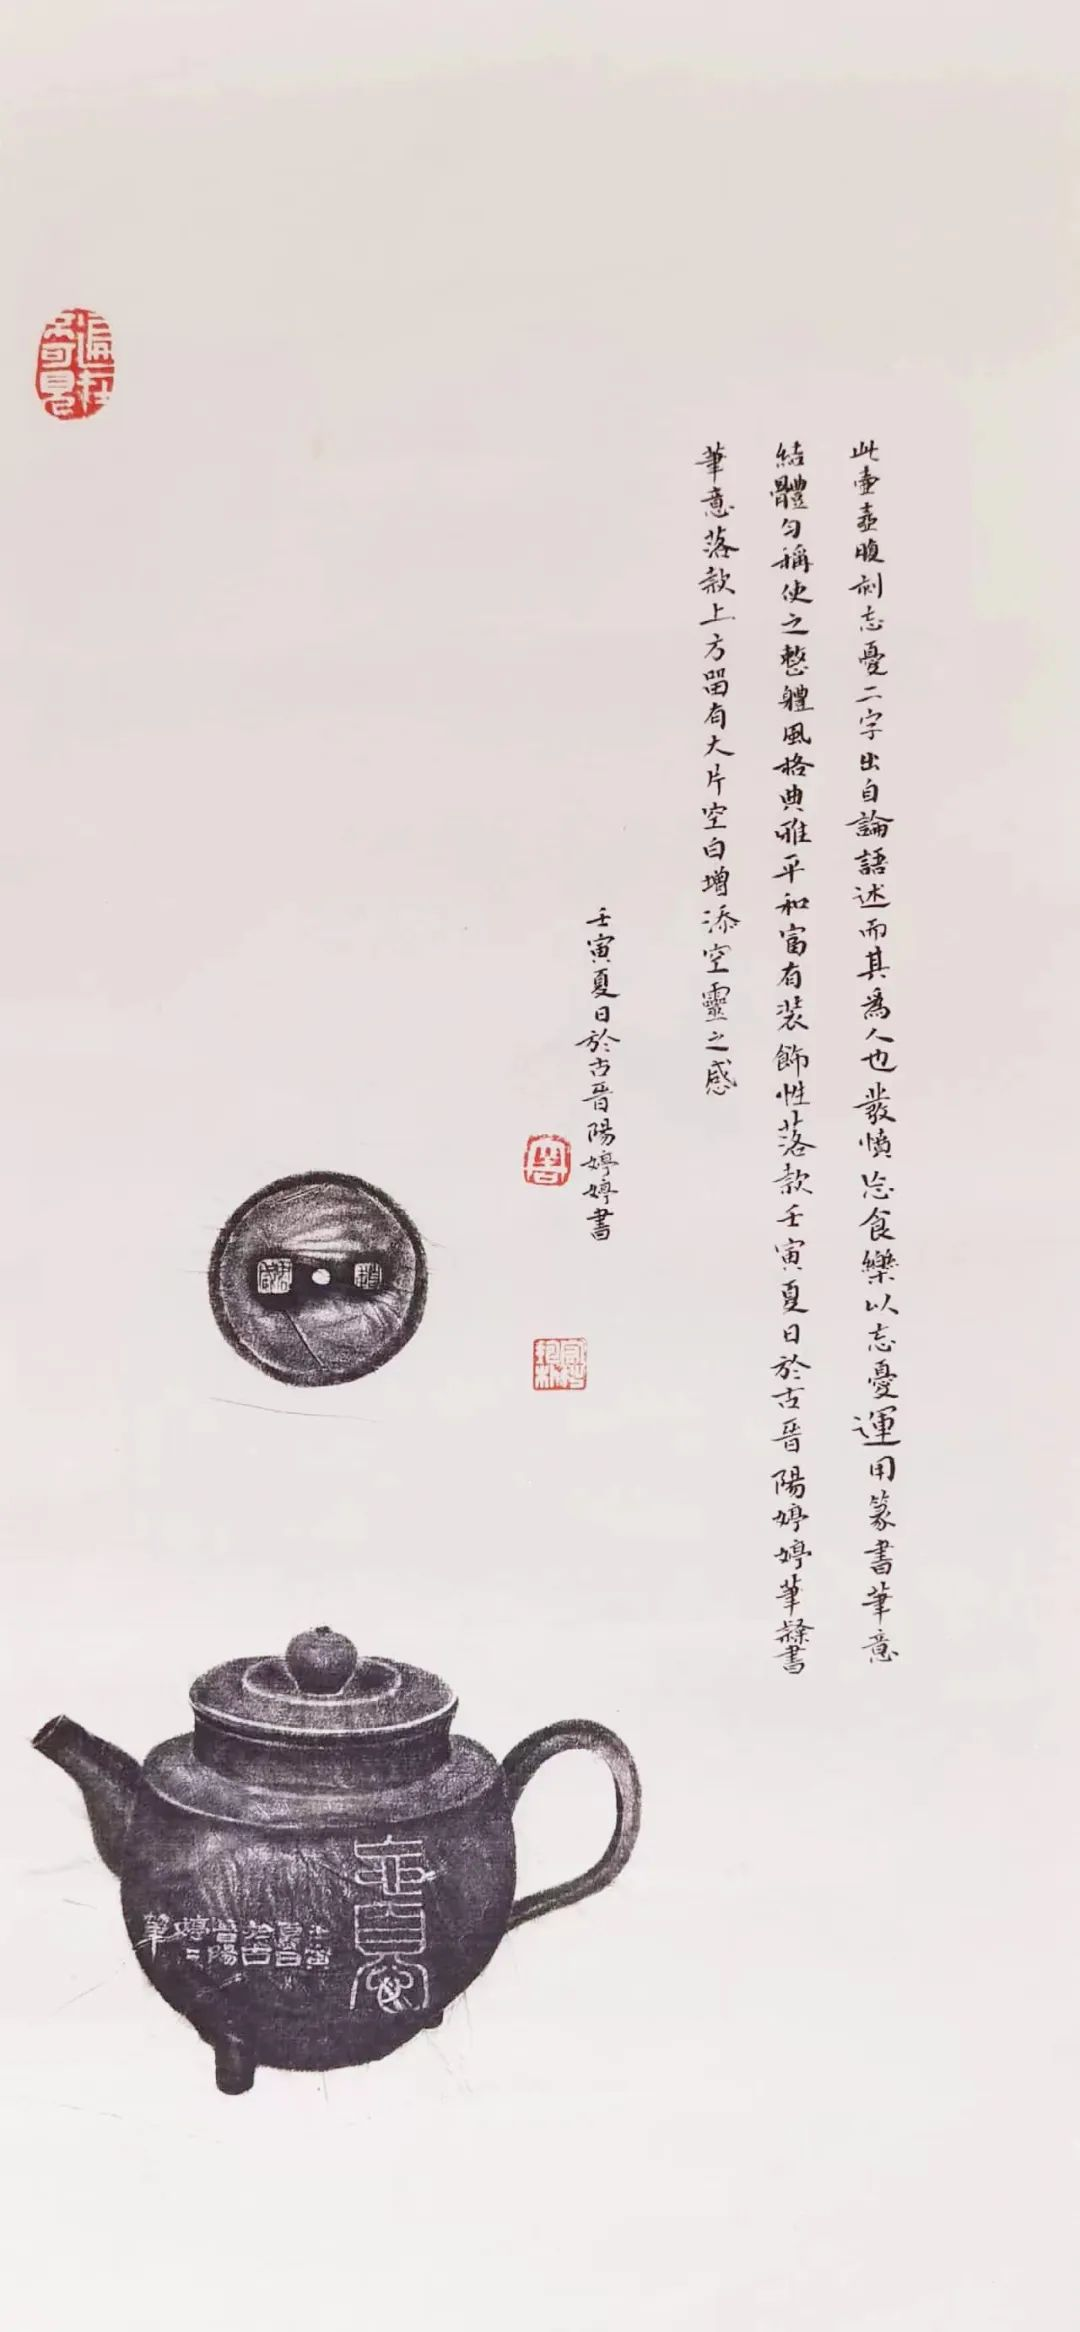 此壷壺腹刻忘憂二字出自論語述而其為人也發憤忘食樂以忘憂運用篆書筆意
結體勻稱使之整體風格典雅平和富有裝飾性落款壬寅夏日於古晉陽婷婷筆隸書
筆意落款上方留有大片空白增添空靈之感
壬寅夏日於古晉陽婷婷書
忘憂
壬寅
夏日
於古
晉陽
婷二
筆